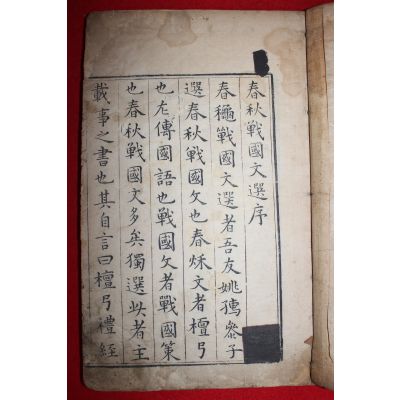 春秋戰國文選序
春龝戰國文選者吾友姚孺叅子
選春秋戰國文也春秌文者檀弓
也左傳國語也戰國文者戰國策
也春秋戰國文多矣獨選此者主
載事之書也其自言曰檀弓禮經